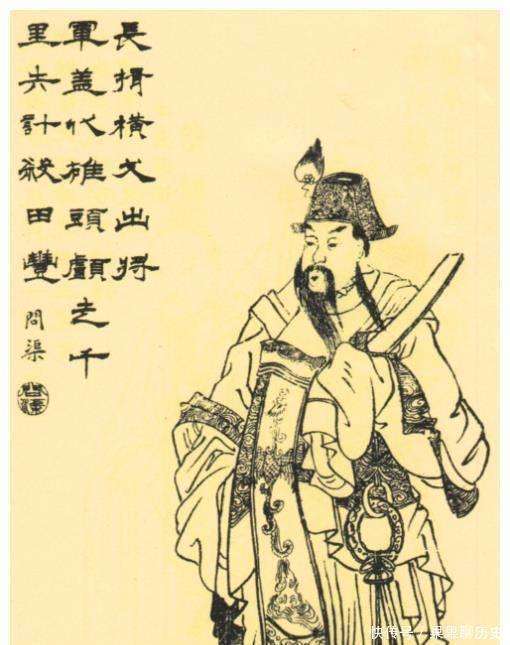 長揖橫刀出將
軍蓋代雄頭顱走千
里失計殺田豐
問渠
快传号 / 聊历史